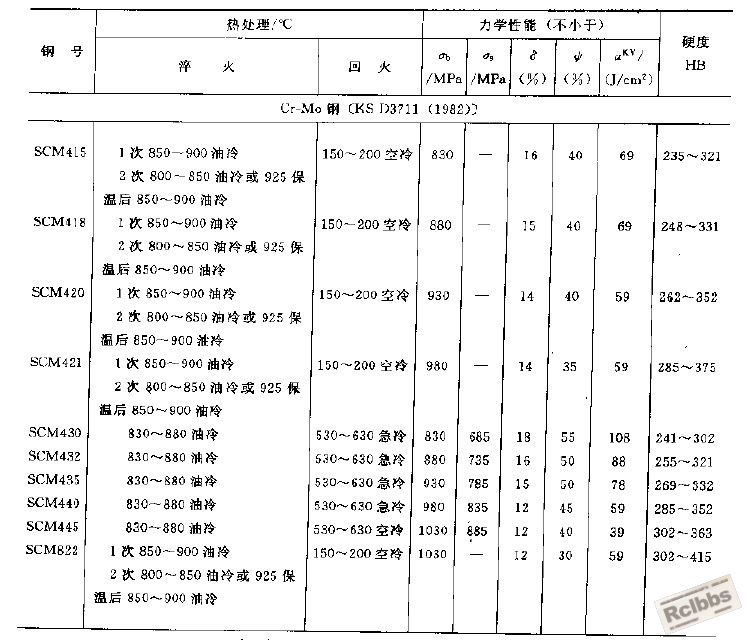 钢 号 热处理/℃ 力学性能(不小于) 硬度 HB
淬 火 回 火 σb /MPa σs /MPa δ (%) ψ (%) αKV/ (J/cm²)
Cr-Mo 钢〔KS D3711 (1982)〕
SCM415 1次 850~900 油冷 150~200 空冷 830 — 16 40 69 235~321
2次 800~850 油冷或 925 保
温后 850~900 油冷
SCM418 1次 850~900 油冷 150~200 空冷 880 — 15 40 69 248~331
2次 800~850 油冷或 925 保
温后 850~900 油冷
SCM420 1次 850~900 油冷 150~200 空冷 930 — 14 40 59 262~352
2次 800~850 油冷或 925 保
温后 850~900 油冷
SCM421 1次 850~900 油冷 150~200 空冷 980 — 14 35 59 285~375
2次 800~850 油冷或 925 保
温后 850~900 油冷
SCM430 830~880 油冷 530~630 急冷 830 685 18 55 108 241~302
SCM432 830~880 油冷 530~630 急冷 880 735 16 50 88 255~321
SCM435 830~880 油冷 530~630 急冷 930 785 15 50 78 269~332
SCM440 830~880 油冷 530~630 急冷 980 835 12 45 59 285~352
SCM445 830~880 油冷 530~630 空冷 1030 885 12 40 39 302~363
SCM822 1次 850~900 油冷 150~200 空冷 1030 — 12 30 59 302~415
2次 800~850 油冷或 925 保
温后 850~900 油冷
Rclbbs